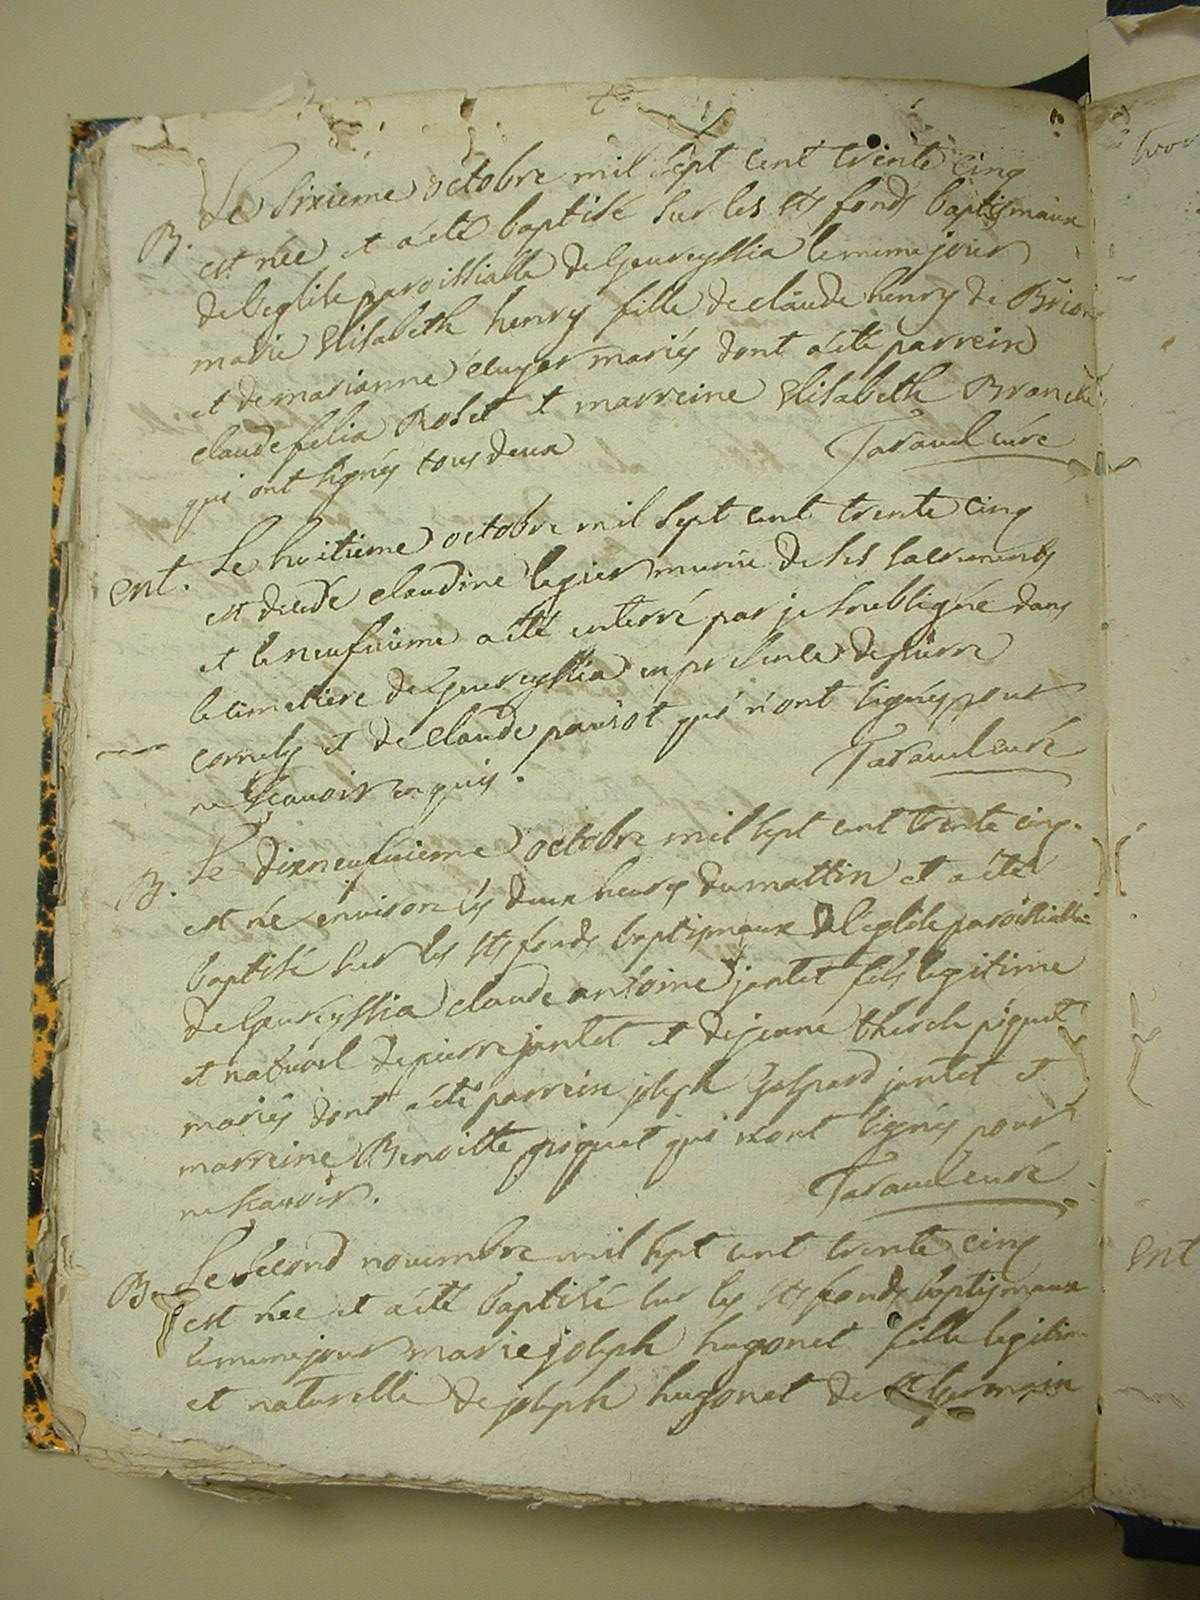 Le sixieme octobre mil sept cent trente cinq
B. est née et a été baptisé sur les sts fonds baptismaux
de leglise paroissialle de Geureyssia le meme jour
marie Elisabeth henry fille de claude henry de
et de marianne mariés dont a été parrein
claude felia Rolet et marreine Elisabeth
qui ont signés tous deux Taraud curé
ent. Le huitieme octobre mil sept cent trente cinq
est decedé claudine legier munie de ses sacrements
et le neufvieme a été enterré par je soubsigné dans
le cimettiere de Geureyssia en presence de pierre
cornely et de claude pauisot qui n'ont signés pour
ne scavoir enquis. Taraud curé
B. Le dixneufvieme octobre mil sept cent trente cinq
est née environ les deux heures du mattin et a été
baptisé sur les sts fonds baptismaux de l'eglise paroissialle
de Geureyssia claude antoine jantet fils legitime
et naturel de pierre jantet et de jeanne therese piquet
mariés dont a été parrein joseph Gaspard jantet et
marreine Benoitte piquet qui n'ont signés pour
ne scavoir. Taraud curé
B. Le second novembre mil sept cent trente cinq
est née et a été baptisé sur les sts fonds baptismaux
le meme jour marie joseph hugonet fille legitime
et naturelle de joseph hugonet de st Germain
ent